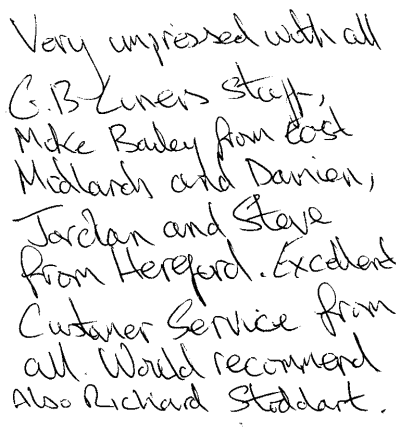 Very impressed with all
G.B Liners staff,
Mike Bailey from East
Midlands and Damien,
Jordan and Steve
from Hereford. Excellent
Customer Service from
all. Would recommend
Also Richard Stoddart.